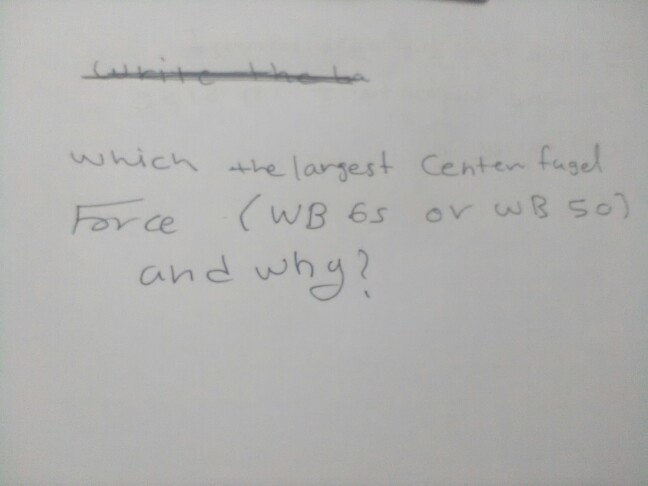 Write the la
which the largest Centen fugel
Force (WB 65 or WB 50)
and why?